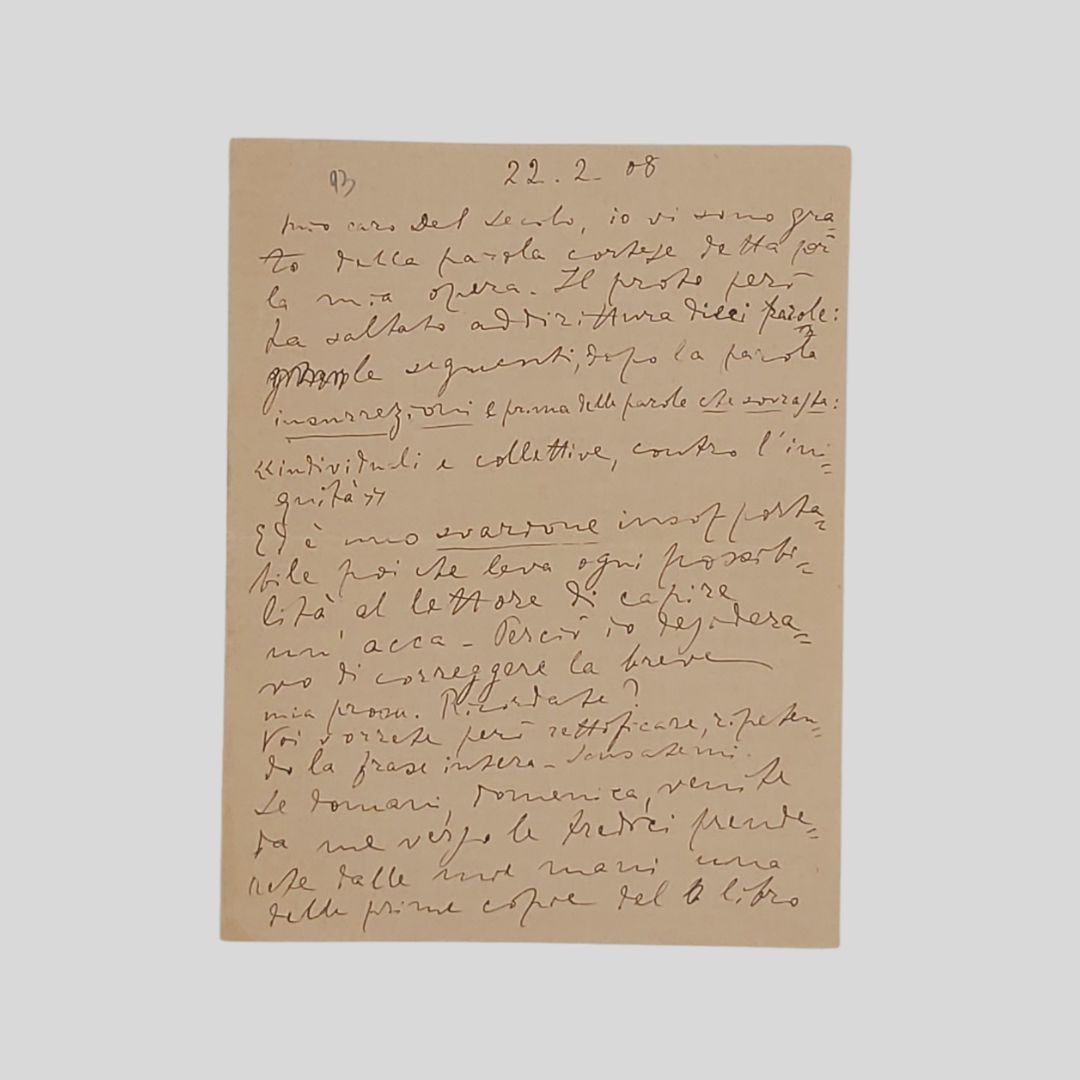 93
22. 2. 08
mio caro Del Secolo, io vi sono gra=
to della parola cortese detta per
la mia opera. Il proto però
ha saltato addirittura dieci parole:
le seguenti, dopo la parola
insurrezioni e prima delle parole che sovrasta:
«individuali e collettive, contro l'ini=
quità»
Ed è uno svarione insopporta=
bile poi che leva ogni possibi=
lità al lettore di capire
un' acca - Perciò io desidera=
vo di correggere la breve
mia prosa. Ricordate?
Voi vorrete però rettificare, ripeten=
do la frase intera - Scusatemi.
Se domani, domenica, venite
da me verso le tredici prende=
rete dalle mie mani una
delle prime copie del libro